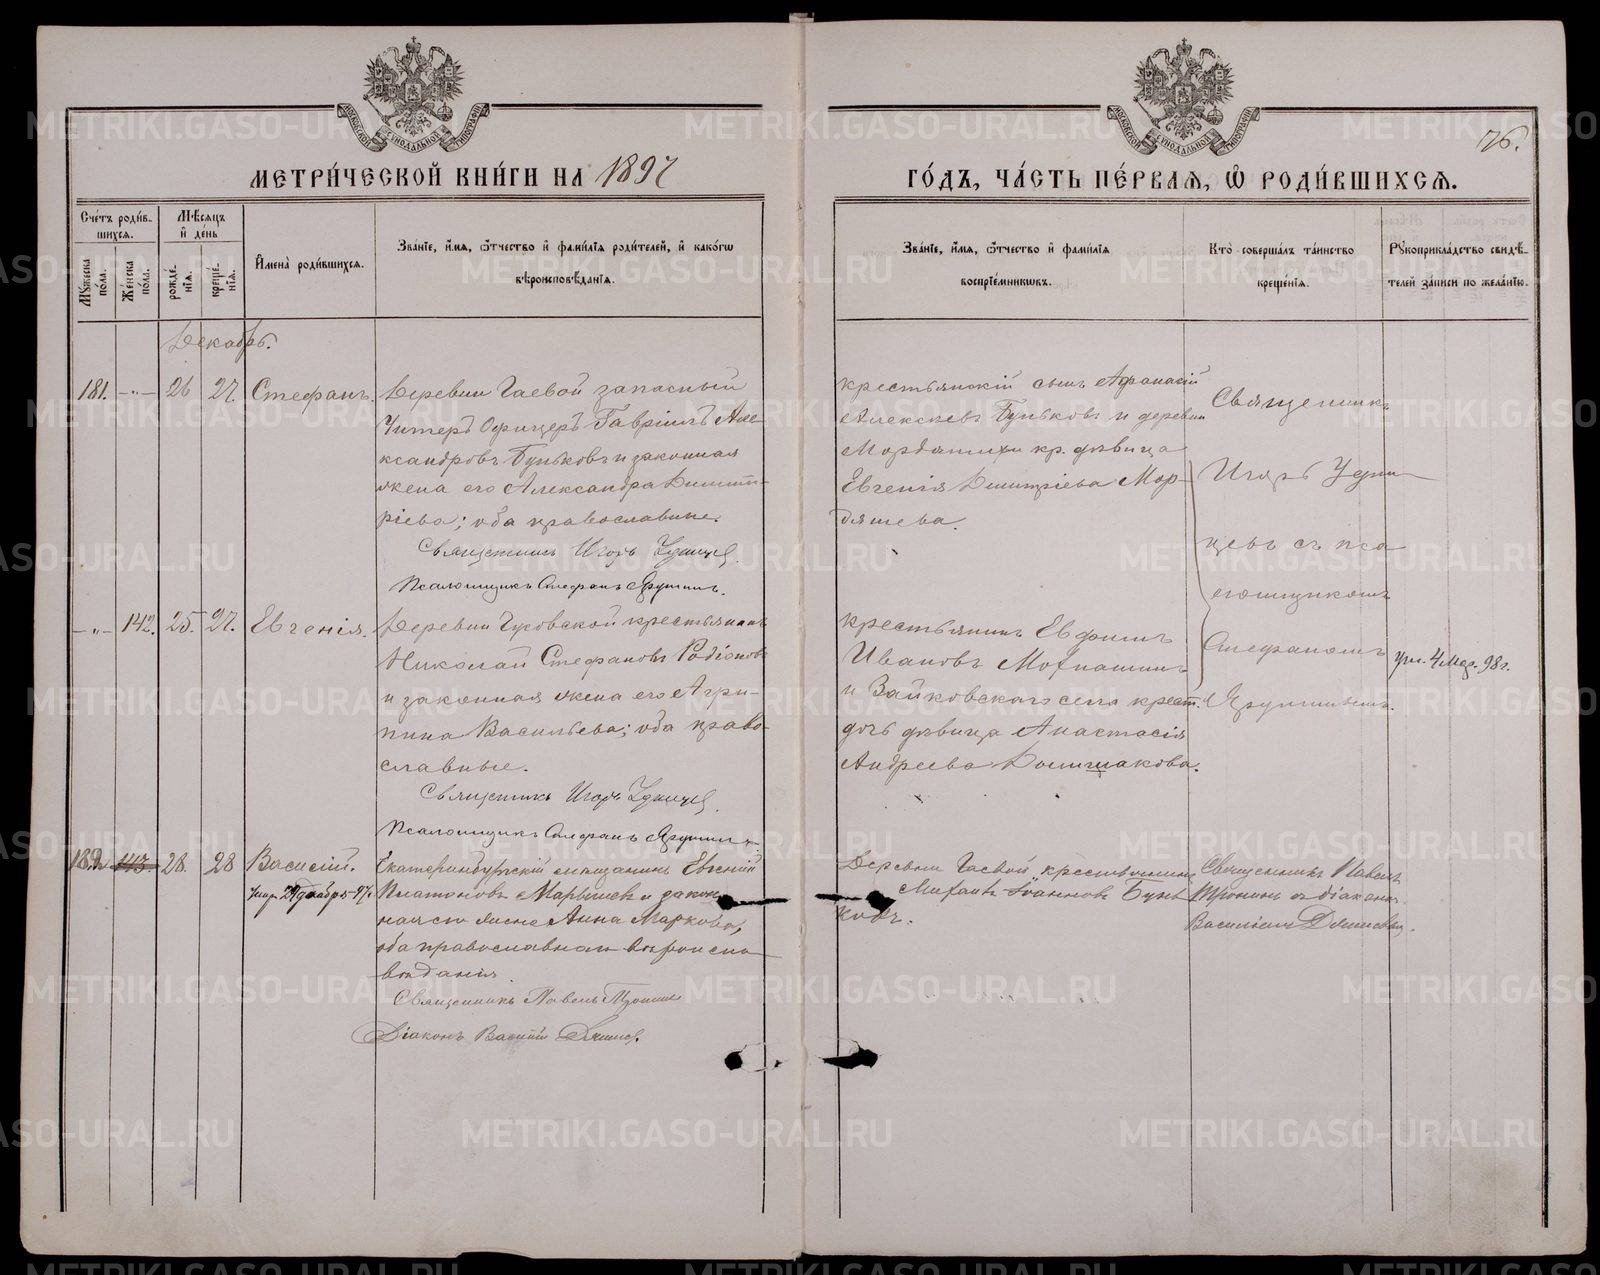 МЕТРИ́ЧЕСКОЙ КНИ́ГИ НА 1897
ГО́ДЪ, ЧА́СТЬ ПЕ́РВАЯ, Ѽ РОДИ́ВШИХСЯ.
76.
МОСКОВСКОЙ СѴНОДАЛЬНОЙ ТИПОГРАФІИ
МОСКОВСКОЙ СѴНОДАЛЬНОЙ ТИПОГРАФІИ
Сче́тъ роди́в-
шихся.
Мꙋ́жеска по́ла.
Же́нска по́ла.
Мѣ́сяцъ
и де́нь
рожде́нїѧ.
креще́нїѧ.
И҆мена̀ роди́вшихсѧ.
Зва́нїе, и҆́мѧ, ѻ҆́тчество и҆ фами́лїѧ роди́телей, и҆ како́гѡ
вѣроисповѣ́данїѧ.
Зва́нїе, и҆́мѧ, ѻ҆́тчество и҆ фами́лїѧ
воспрїе́мникѡвъ.
Кто̀ соверша́лъ та́инство
креще́нїѧ.
Рꙋкоприкла́дство свидѣ́-
телей за́писи по жела́нїю.
Декабрь.
181. — " — 26 27. Стефанъ.
Деревни Гаевой запасный
Унтеръ Офицеръ Гавріилъ Але-
ксандровъ Буньковъ и законная
жена его Александра Димит-
ріева; оба православные.
Священникъ Игорь Удинцев
Псаломщикъ Стефанъ Ярушинъ.
крестьянскій сынъ Афанасій
Алексѣевъ Буньковъ и деревни
Мордяшихи кр. дѣвица
Евгенія Димитріева Мор-
дяшева.
Священникъ
Игорь Удин
цевъ съ пса
ломщикомъ
Стефаномъ
Ярушинымъ.
— " — 142. 25. 27. Евгенія.
Деревни Чусовской крестьянинъ
Николай Стефановъ Родіоновъ
и законная жена его Агри-
пина Васильева; оба право-
славные.
Священникъ Игорь Удинцев
Псаломщикъ Стефанъ Ярушинъ.
крестьянинъ Евфимъ
Ивановъ Мохнашинъ
и Зайковскаго села крест.
дочь дѣвица Анастасія
Андреева
ум. 4 Мар. 98 г.
182. 143. 28. 28 Василій.
Умер. 29 декабря 97 г.
Екатеринбургскій мѣщанинъ Евгеній
Платоновъ Марышев и закон
ная его жена Анна Маркова,
оба православнаго вѣроиспо
вѣданія
Священникъ Павелъ
Діаконъ Василій
Деревни Гаевой крестьянинъ
Михаилъ Іоанновъ Бунь
ковъ.
Священникъ Павелъ
съ діакономъ
Василіемъ
METRIKI.GASO-URAL.RU